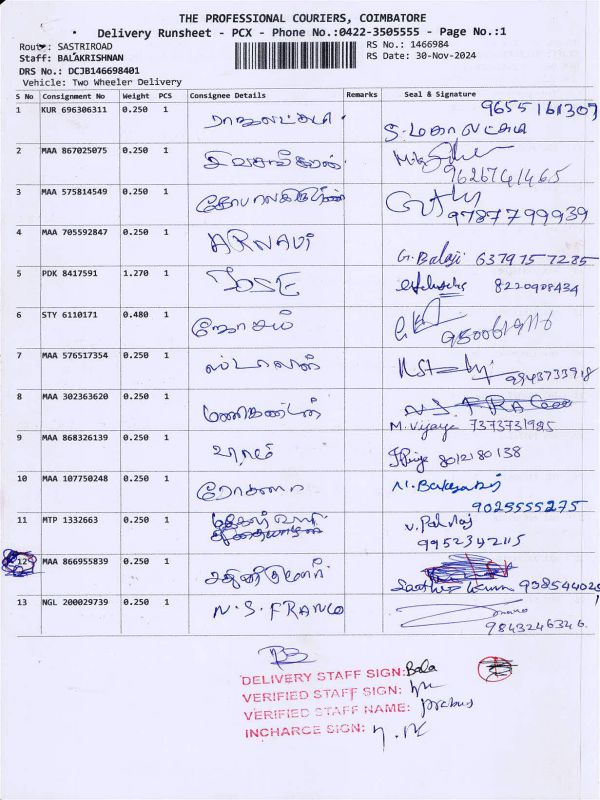 THE PROFESSIONAL COURIERS, COIMBATORE
Delivery Runsheet - PCX - Phone No.:0422-3505555 - Page No.:1
Route: SASTRIROAD
RS No.: 1466984
Staff: BALAKRISHNAN
RS Date: 30-Nov-2024
DRS No.: DCJB146698401
Vehicle: Two Wheeler Delivery
S No Consignment No Weight PCS Consignee Details Remarks Seal & Signature
1 KUR 696306311 0.250 1 ராஜலட்சுமி 9655161307
S. மகாலட்சுமி
2 MAA 867025075 0.250 1 சிவசங்கரன்
9626741465
3 MAA 575814549 0.250 1 கோபாலகிருஷ்ணன்
9787799939
4 MAA 705592847 0.250 1 ARNAVI
G. Balaji 6379757285
5 PDK 8417591 1.270 1 JOSE
8220908434
6 STY 6110171 0.480 1 ஜோசம்
7 MAA 576517354 0.250 1 ஸ்டாலின்
9943733918
8 MAA 302363620 0.250 1 மணிகண்டன்
M. Vijaya 7373731985
9 MAA 868326139 0.250 1
8012180138
10 MAA 107750248 0.250 1 ரோசனை
9025555275
11 MTP 1332663 0.250 1
9952342115
12 MAA 866955839 0.250 1
13 NGL 200029739 0.250 1 N.S. FRANCO
9843246346
DELIVERY STAFF SIGN: Bala
VERIFIED STAFF SIGN:
VERIFIED STAFF NAME:
INCHARGE SIGN: